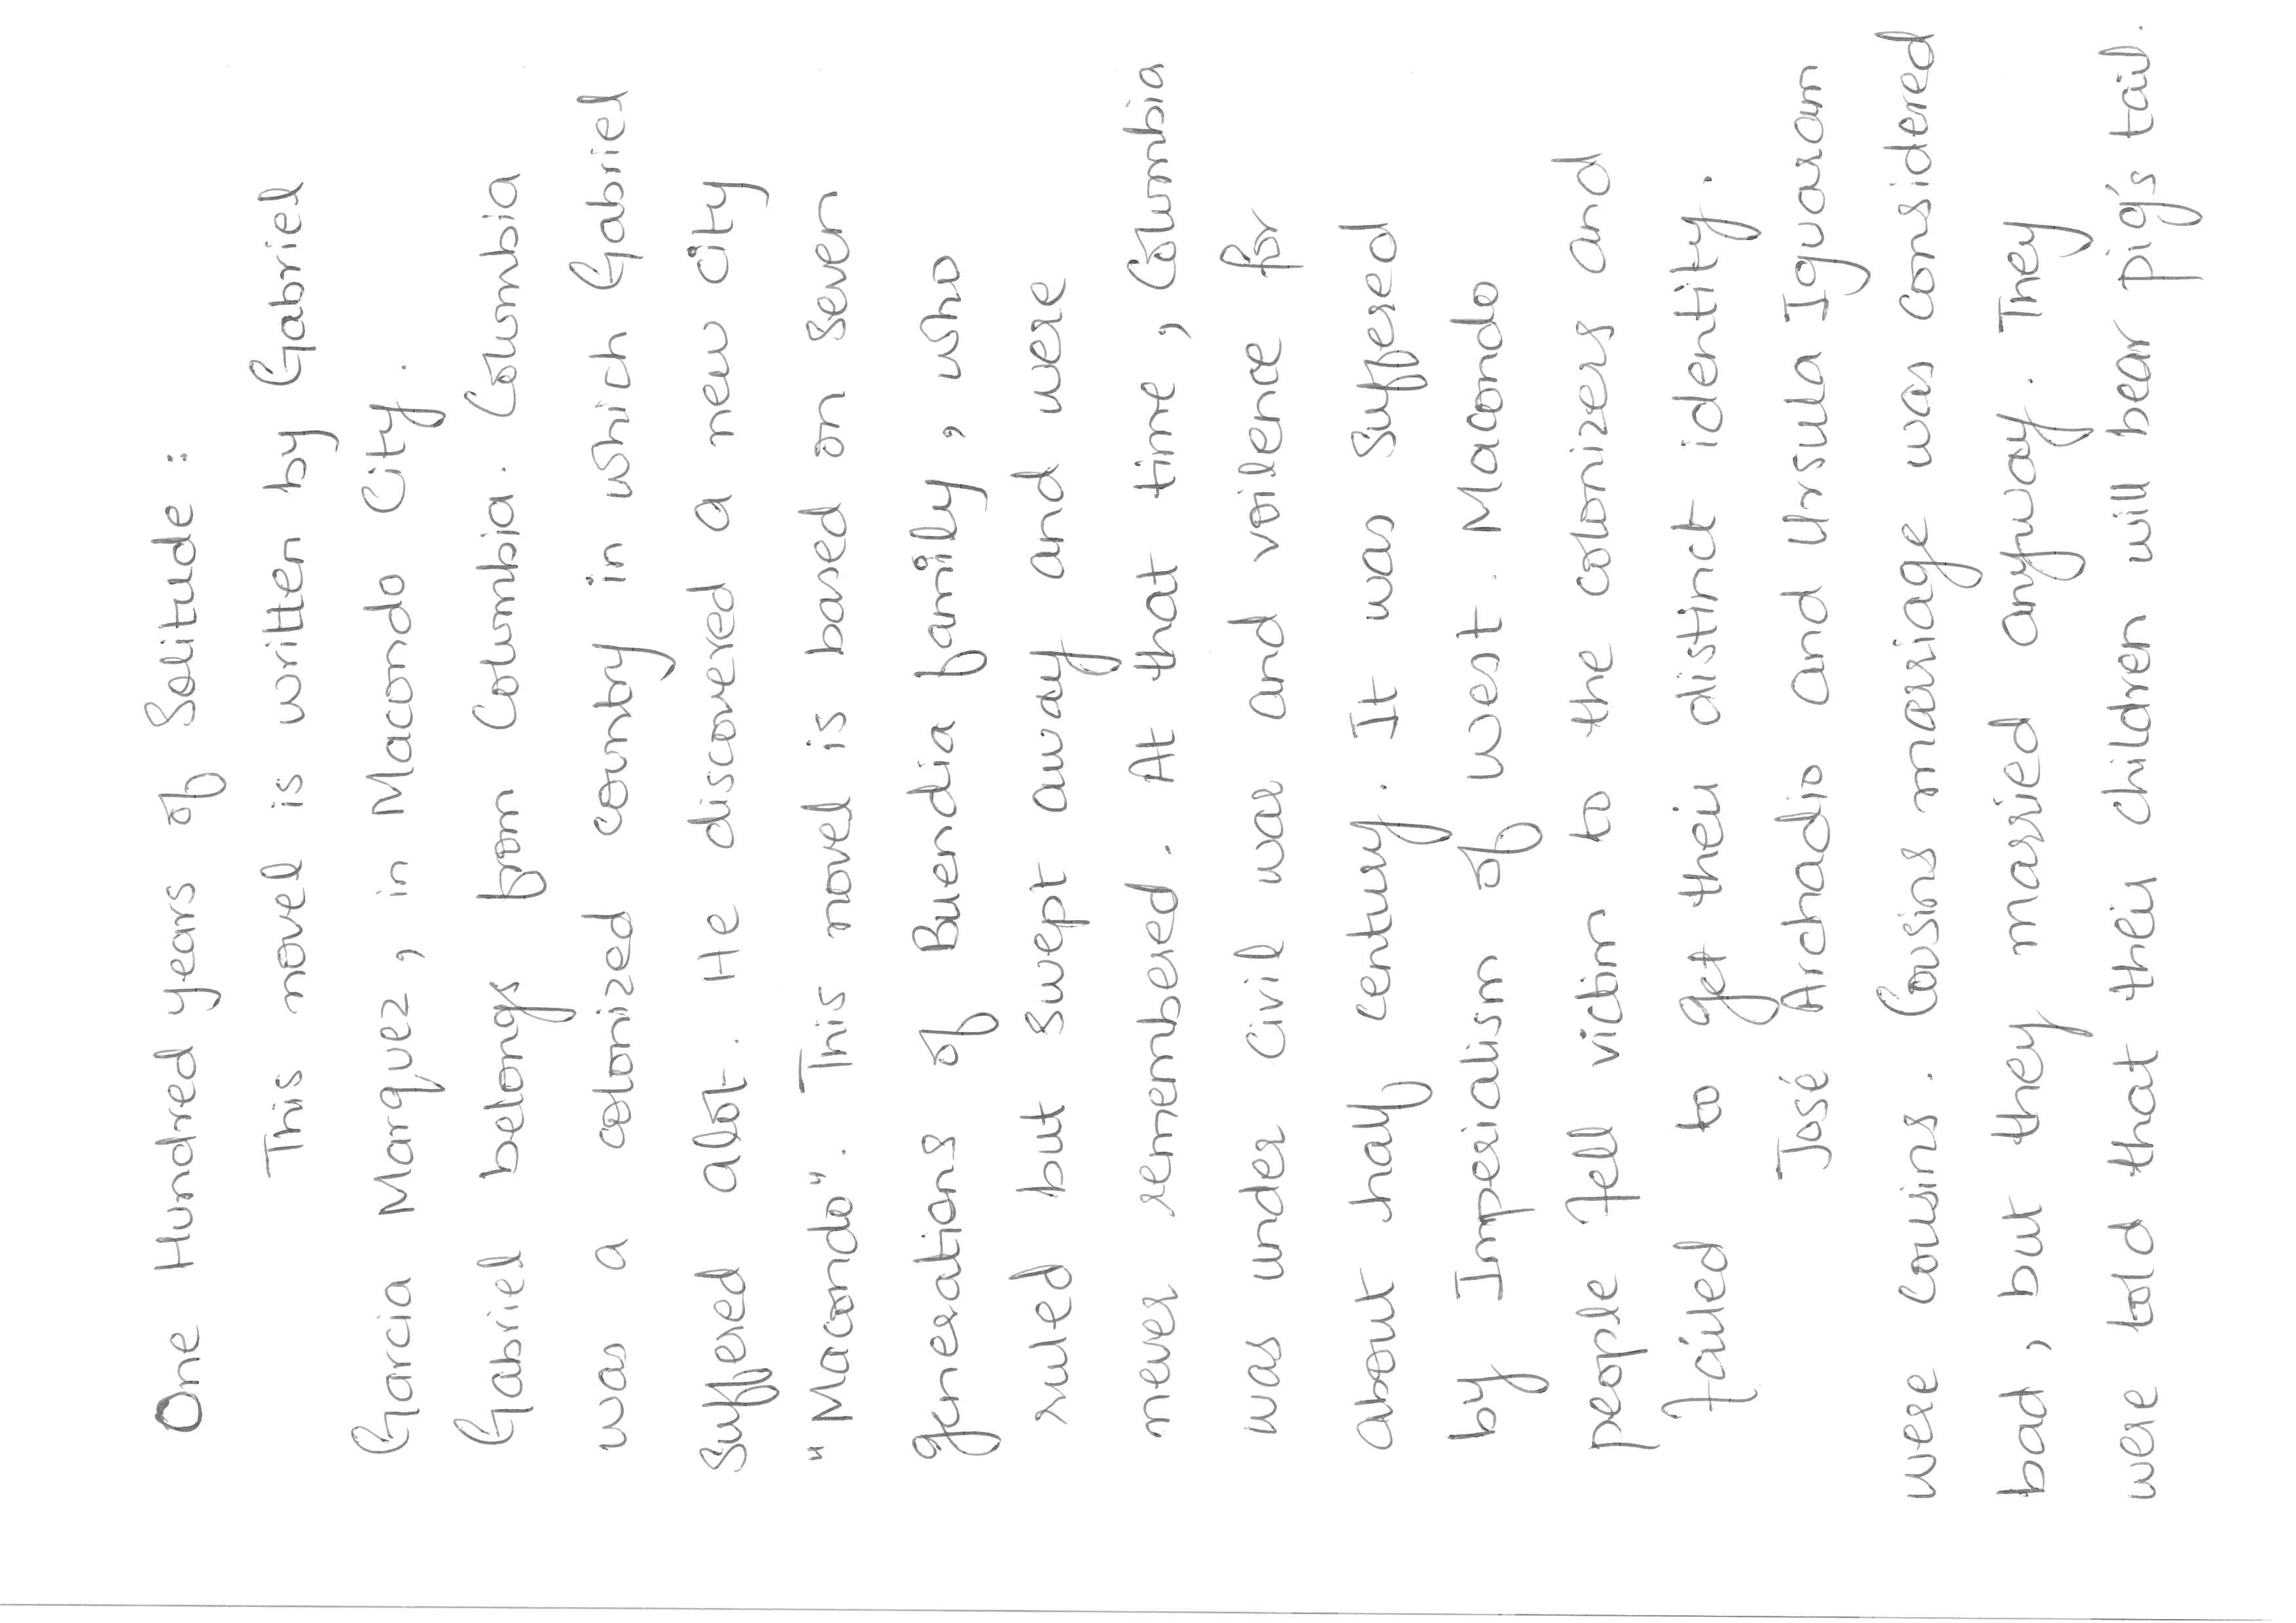 One Hundred years of Solitude :
This novel is written by Gabriel
Garcia Marquez, in Macondo City.
Gabriel belongs from Columbia. Columbia
was a colonized country in which Gabriel
suffered alot. He discovered a new city
"Macondo". This novel is based on seven
generations of Buendia family, who
ruled but swept away and were
never remembered. At that time, Columbia
was under civil war and voilence for
about half century. It was suffered
by Imperialism of West. Macondo
people fell victim to the colonizers and
failed to get their distinct identity.
José Archadio and Ursula Iguaram
were cousins. Cousins marriage was considered
bad, but they married anyway. They
were told that their children will bear pig's tail.